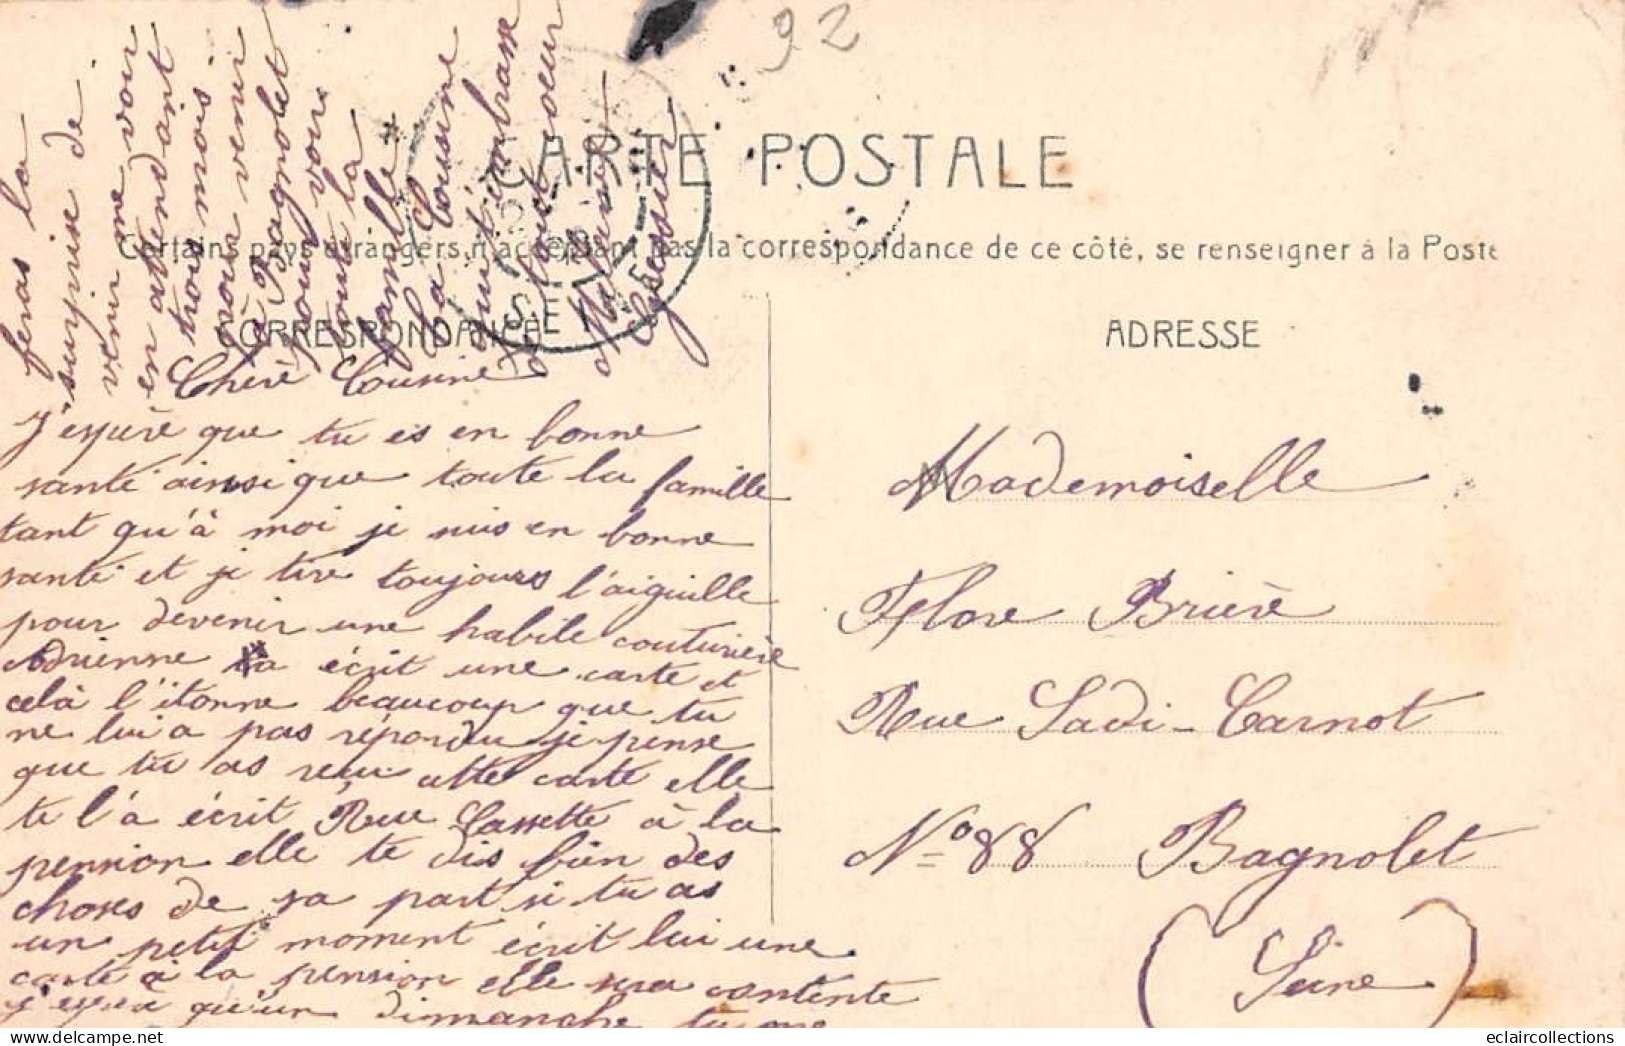 92
CARTE POSTALE
Certains pays étrangers n'acceptant pas la correspondance de ce côté, se renseigner à la Poste
CORRESPONDANCE
ADRESSE
Chère Cousine
J'espère que tu es en bonne
santé ainsi que toute la famille
tant qu'à moi je suis en bonne
santé et je tire toujours l'aiguille
pour devenir une habile couturière
Adrienne ta écrit une carte et
celà l'étonne beaucoup que tu
ne lui a pas répondu je pense
que tu as reçu cette carte elle
te l'a écrit Rue Cassette à la
pension elle te dis bien des
choses de sa part si tu as
un petit moment écrit lui une
carte à la pension elle sera contente
j'espère qu'un dimanche tu me
feras la
surprise de
venir me voir
en attendant
trois mois
pour venir
à Bagnolet
pour voir
toute la
famille
Ta Cousine
qui t'embrasse
de tout coeur
Gessier
SEINE
Mademoiselle
Flore Brière
Rue Sadi-Carnot
No 88 Bagnolet
(Seine)
eclaircollections